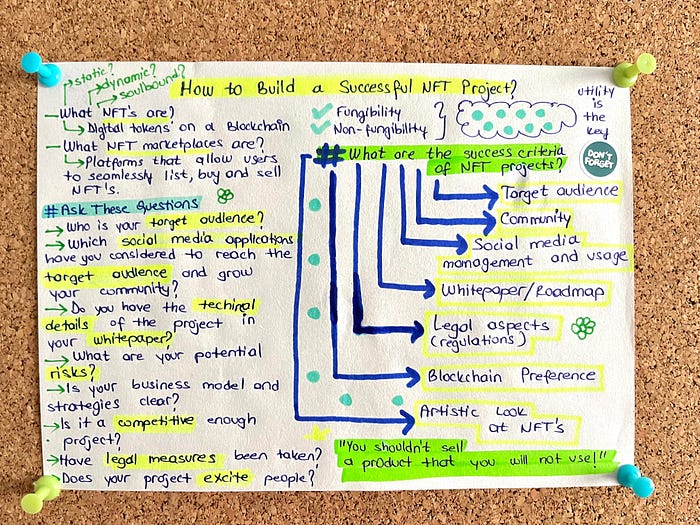 static?
dynamic?
soulbound?
How to Build a Successful NFT Project?
What NFT's are?
Digital tokens on a Blockchain
What NFT marketplaces are?
Platforms that allow users
to seamlessly list, buy and sell
NFT's.
#Ask These Questions
Who is your target audience?
Which social media applications
have you considered to reach the
target audience and grow
your community?
Do you have the techinal
details of the project in
your whitepaper?
What are your potential
risks?
Is your business model and
strategies clear?
Is it a competitive enough
project?
Have legal measures been taken?
Does your project excite people?
Fungibility
Non-fungibility
utility
is
the
key
DON'T
FORGET
# What are the success criteria
of NFT projects?
Target audience
Community
Social media
management and usage
Whitepaper/Roadmap
Legal aspects
(regulations)
Blockchain Preference
Artistic Look
at NFT's
"You shouldn't sell
a product that you will not use!"